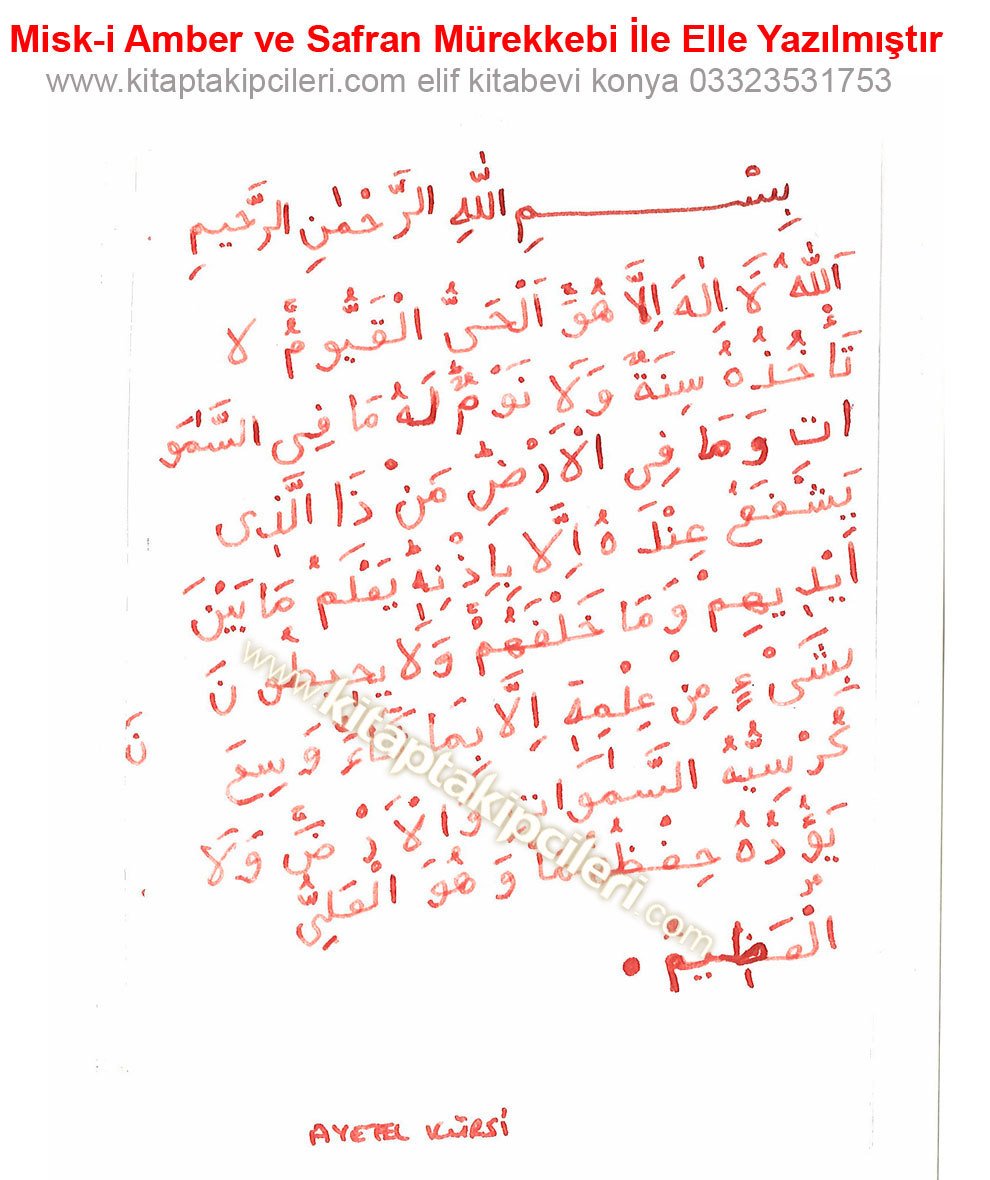 Misk-i Amber ve Safran Mürekkebi İle Elle Yazılmıştır
www.kitaptakipcileri.com elif kitabevi konya 03323531753
بِسْمِ اللّٰهِ الرَّحْمٰنِ الرَّحٖيمِ
اَللّٰهُ لَا اِلٰهَ اِلَّا هُوَ اَلْحَىُّ الْقَيُّومُ لا
تَأْخُذُهُ سِنَةٌ وَلَا نَوْمٌ لَهُ مَا فِى السَّمٰوَ
ات وَمَا فِى الْاَرْضِ مَنْ ذَا الَّذٖى
يَشْفَعُ عِنْدَهُ اِلَّا بِاِذْنِهٖ يَعْلَمُ مَا بَيْنَ
اَيْدٖيهِمْ وَمَا خَلْفَهُمْ وَلَا يُحٖيطُونَ
نَ
بِشَىْءٍ مِنْ عِلْمِهٖ اِلَّا بِمَا شَاءَ وَسِعَ
كُرْسِيُّهُ السَّمٰوَاتِ وَالْاَرْضَ وَلَا
يَؤُدُهُ حِفْظُهُمَا وَهُوَ الْعَلِىُّ
الْعَظٖيمُ .
www.kitaptakipcileri.com
AYETEL KÜRSİ